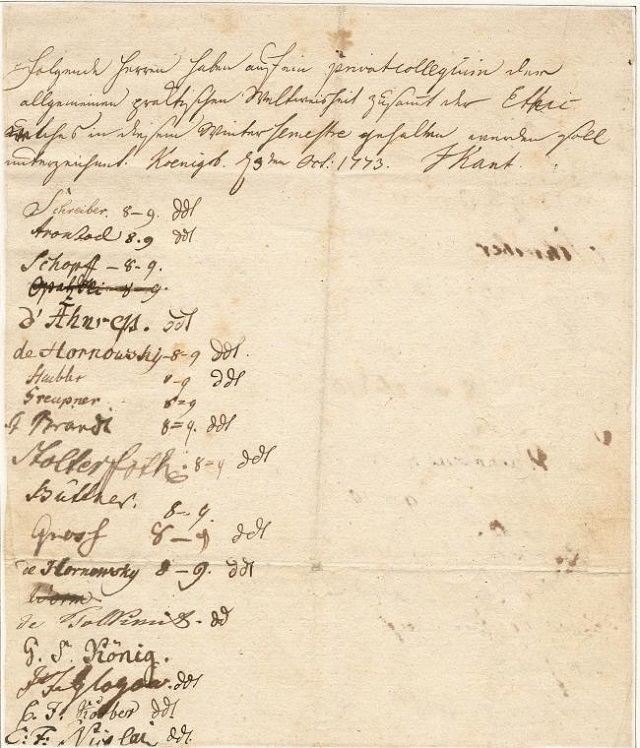 Folgende Herren haben auf ein privatcollegium der
allgemeinen praktischen Weltweisheit zusamt der Ethic
welches in diesem Winter semestre gehalten werden soll
unterzeichnet. Koenigsb. den Oct. 1773. IKant.
Schreiber. 8-9. ddt
8.9 ddt
Schopff - 8-9.
8-9.
ddt
de Hornowsky-8-9 ddt.
8-9 ddt
Greupner. 8=9
Brandt 8=9. ddt
Holterfoth. 8=9 ddt
Büttner. 8-9.
8-9 ddt
de Hornowsky 8-9. ddt
de Tolkimit. dd
G. S. König.
Glogau. ddt
C. F. Körber ddt
C. F. Nicolai ddt.